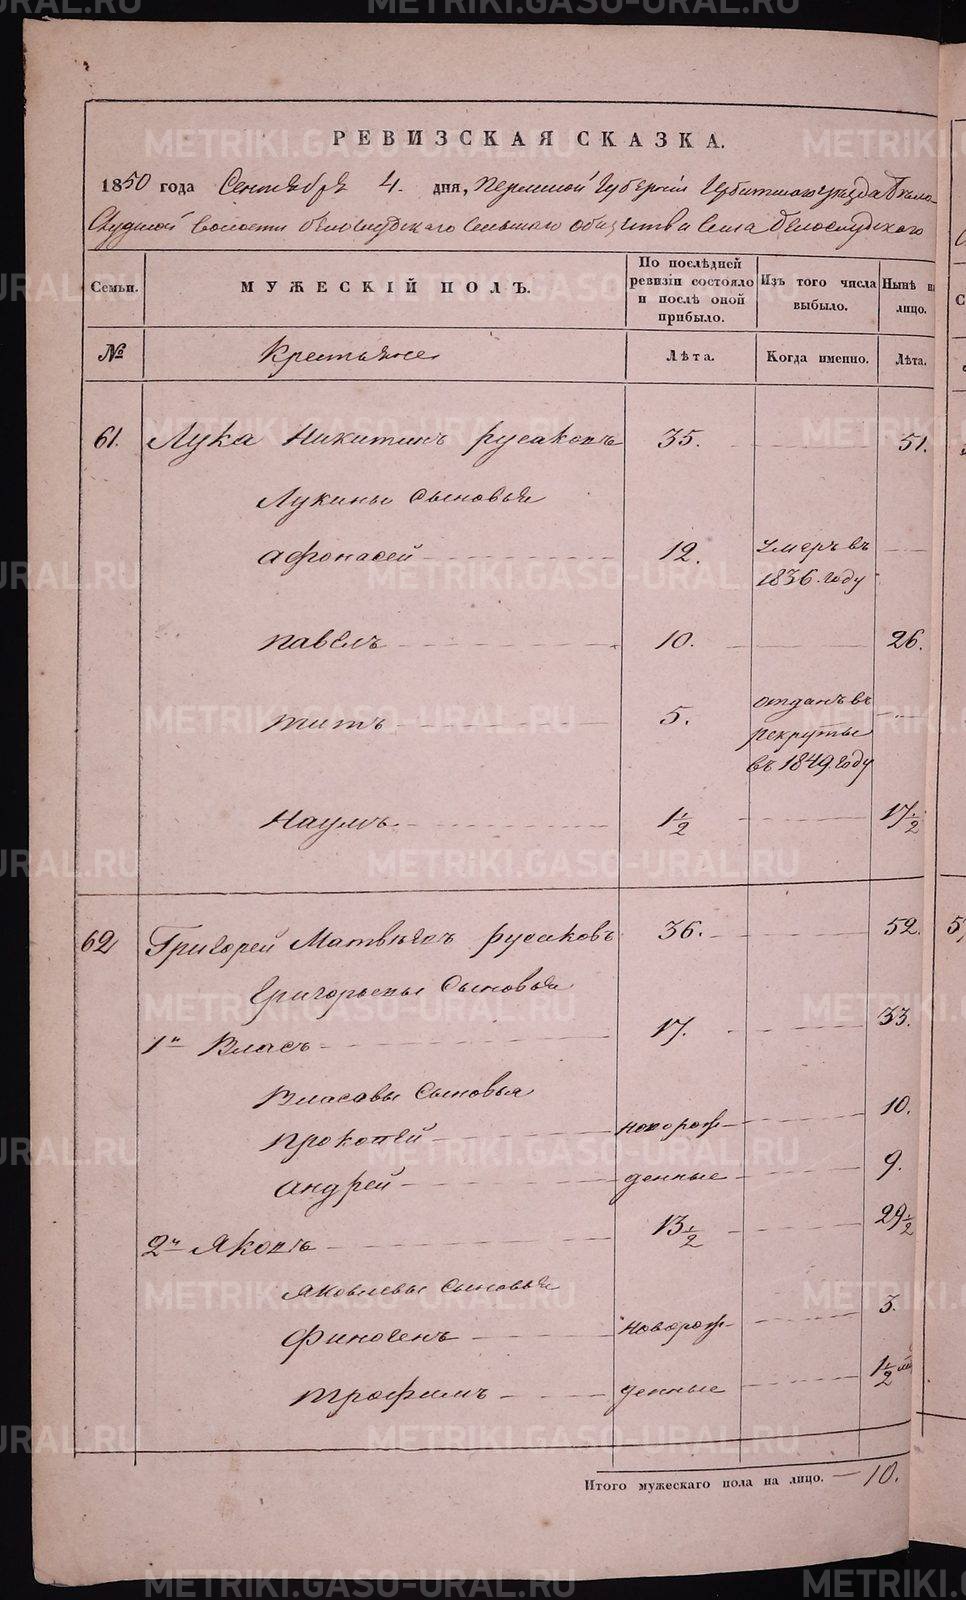 РЕВИЗСКАЯ СКАЗКА.
1850 года Сентября 4. дня, Пермской Губернии Ирбитского уезда Бело-
слудской волости Белослудского сельского общества села Белослудского
Семьи. МУЖЕСКІЙ ПОЛЪ. По послѣдней ревизіи состояло и послѣ оной прибыло. Изъ того числа выбыло. Нынѣ на лицо.
№ Крестьяне Лѣта. Когда именно. Лѣта.
61. Лука Никитинъ русаковъ 35. 51.
Лукины сыновья
афонасей 12. умеръ въ 1836. году
павелъ 10. 26.
титъ 5. отданъ въ рекруты въ 1849. году
Наумъ 1½ 17½
62 Григорей Матвѣевъ русаковъ 36. 52.
Григорьевы сыновья
1й Власъ 17. 33.
Власовы сыновья
прокопей новорож- 10.
андрей денные 9.
2й Яковъ 13½ 29½
Яковлевы сыновья
Финогенъ новорож- 3.
трофимъ денные 1½
Итого мужескаго пола на лицо. — 10.
METRIKI.GASO-URAL.RU